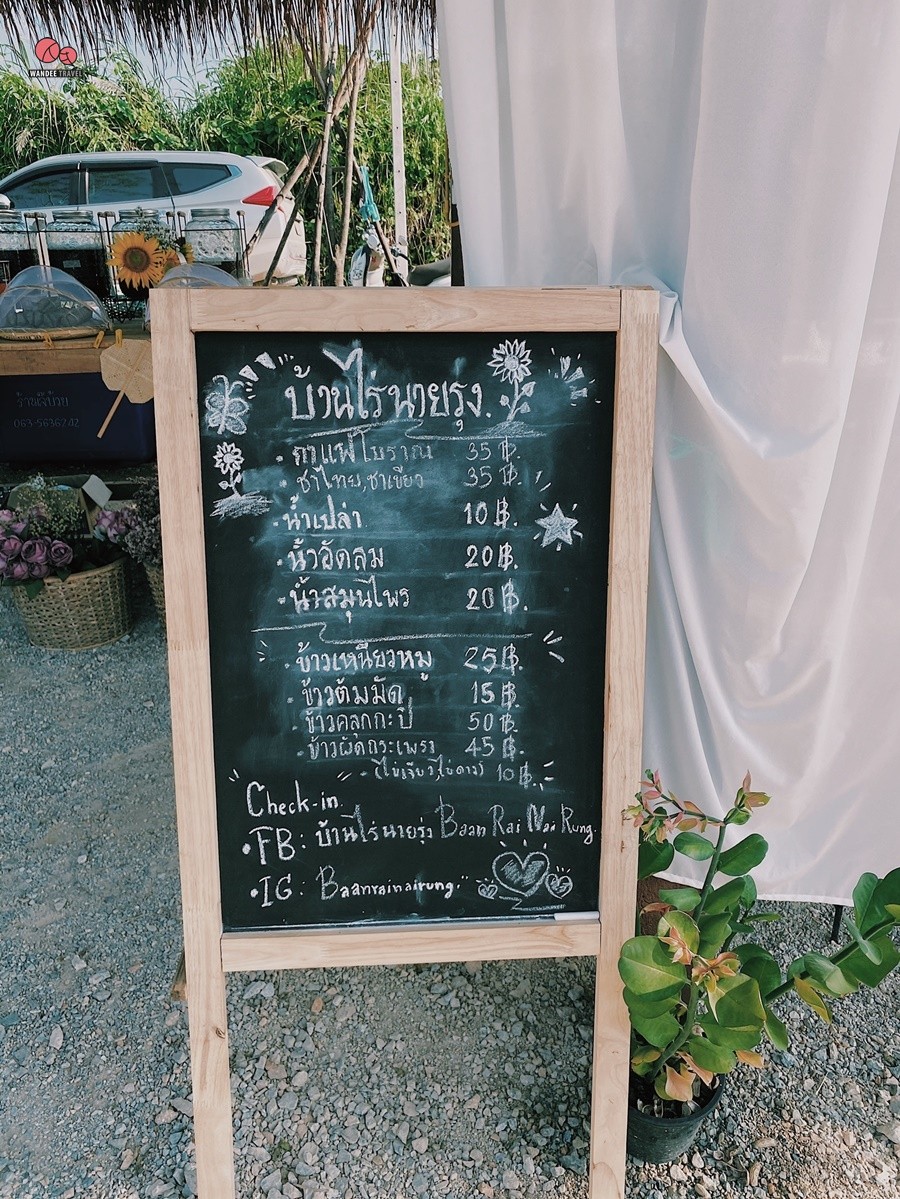 WANDEE TRAVEL
บ้านไร่นายรุ่ง.
• กาแฟโบราณ 35 ฿.
• ชาไทย,ชาเขียว 35 ฿.
• น้ำเปล่า 10 ฿.
• น้ำอัดลม 20 ฿.
• น้ำสมุนไพร 20 ฿.
• ข้าวเหนียวหมู 25 ฿.
• ข้าวต้มมัด 15 ฿.
• ข้าวคลุกกะปิ 50 ฿.
• ข้าวผัดกระเพรา 45 ฿.
- (ไข่เจียว,ไข่ดาว) 10 ฿.
" Check-in "
• FB : บ้านไร่นายรุ่ง Baan Rai Nai Rung.
• IG : Baanrainairung."
063-5636242